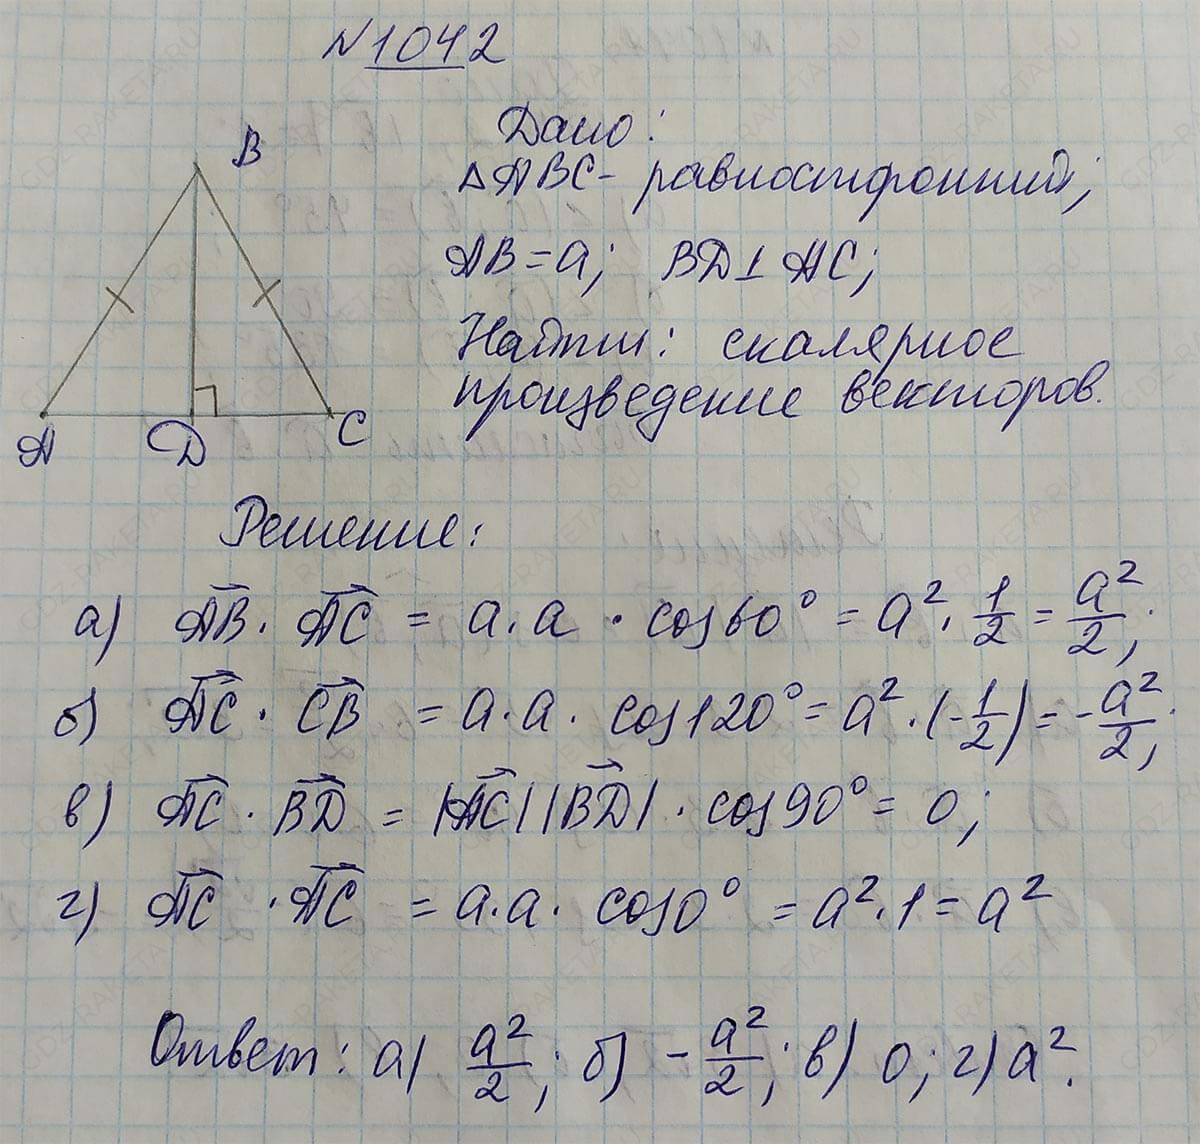 №1042
B
A
D
C
Дано:
△ABC- равносторонний;
AB=a; BD⊥AC;
Найти: скалярное
произведение векторов.
Решение:
а) AB⃗ · AC⃗ = a·a · cos60° = a² · 1/2 = a²/2;
б) AC⃗ · CB⃗ = a·a · cos120° = a² · (-1/2) = -a²/2;
в) AC⃗ · BD⃗ = |AC⃗||BD⃗| · cos90° = 0;
г) AC⃗ · AC⃗ = a·a · cos0° = a²·1 = a²
Ответ: а) a²/2; б) -a²/2; в) 0; г) a².
GDZ-RAKETA.RU